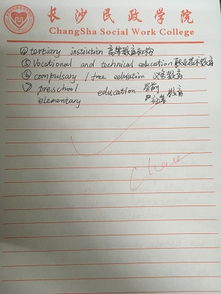 长沙民政学院
ChangSha Social Work College
④ tertiary institution 高等教育机构
⑤ Vocational and technical education 职业技术教育
⑥ compulsary / free education 义务教育
⑦ preschool education 学前教育
elementary